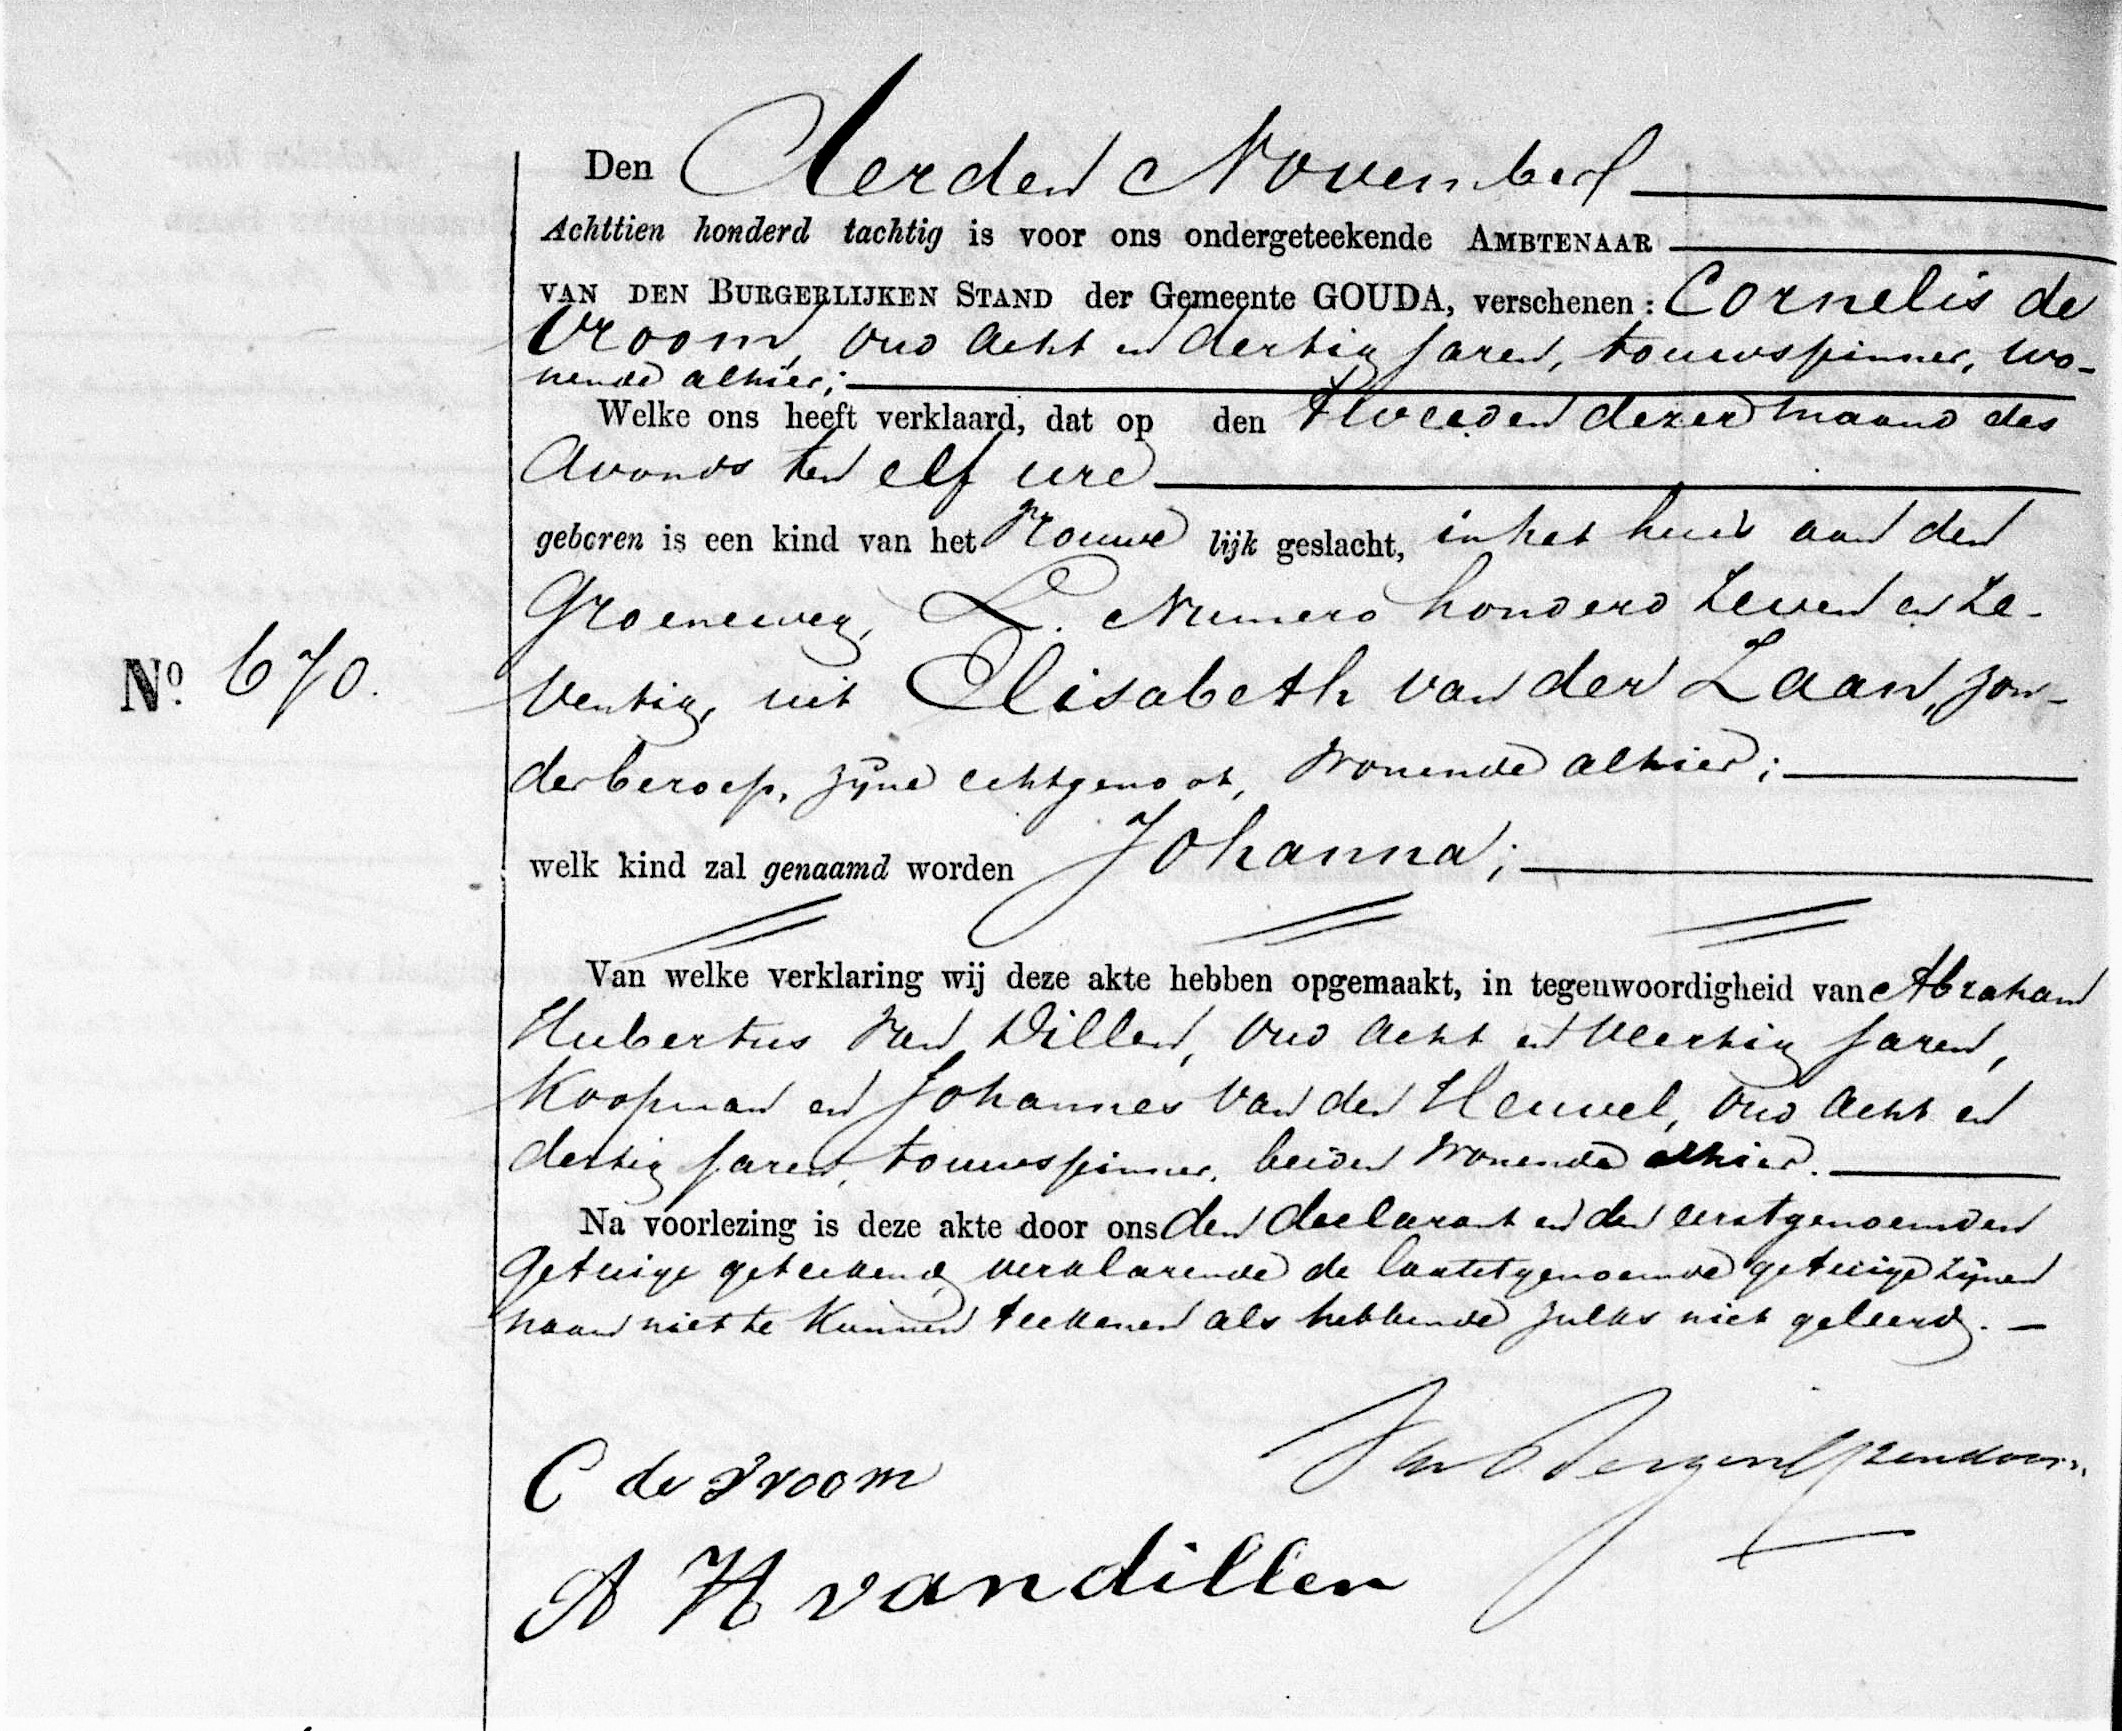 Den Vierden November
Achttien honderd tachtig is voor ons ondergeteekende AMBTENAAR
VAN DEN BURGERLIJKEN STAND der Gemeente GOUDA, verschenen: Cornelis de
Vroom, oud acht en dertig jaren, touwspinner, wo-
nende alhier;
Welke ons heeft verklaard, dat op den Tweeden dezer maand des
avonds ten elf ure
geboren is een kind van het vrouwelijk geslacht, in het huis aan den
Groeneweg, L. Numero honderd zeven en ze-
ventig, uit Elisabeth van der Laan, zon-
der beroep, zijne echtgenoot, wonende alhier;
welk kind zal genaamd worden Johanna;
Van welke verklaring wij deze akte hebben opgemaakt, in tegenwoordigheid van Abraham
Hubertus van Dillen, oud acht en veertig jaren,
Koopman en Johannes van den Heuvel, oud acht en
dertig jaren, touwspinner, beiden wonende alhier.
Na voorlezing is deze akte door ons den declarant en den eerstgenoemden
getuige geteekend, verklarende de laatstgenoemde getuige zijnen
naam niet te kunnen teekenen als hebbende zulks niet geleerd.
No. 670.
C de Vroom
van Bergen IJzendoorn
A H van dillen